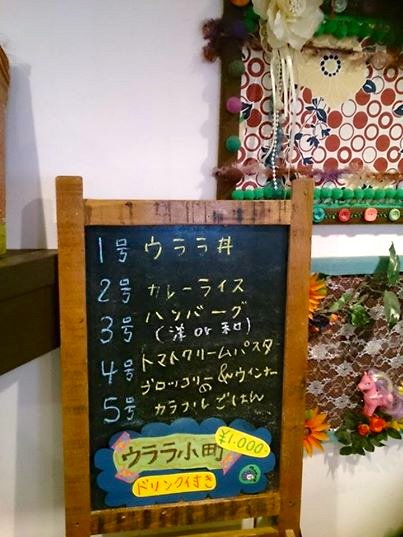 1号 ウララ丼
2号 カレーライス
3号 ハンバーグ
(洋 or 和)
4号 トマトクリームパスタ
ブロッコリーの&ウインナー
5号 カラフルごはん
ウララ小町 ¥1,000-
ドリンク付き